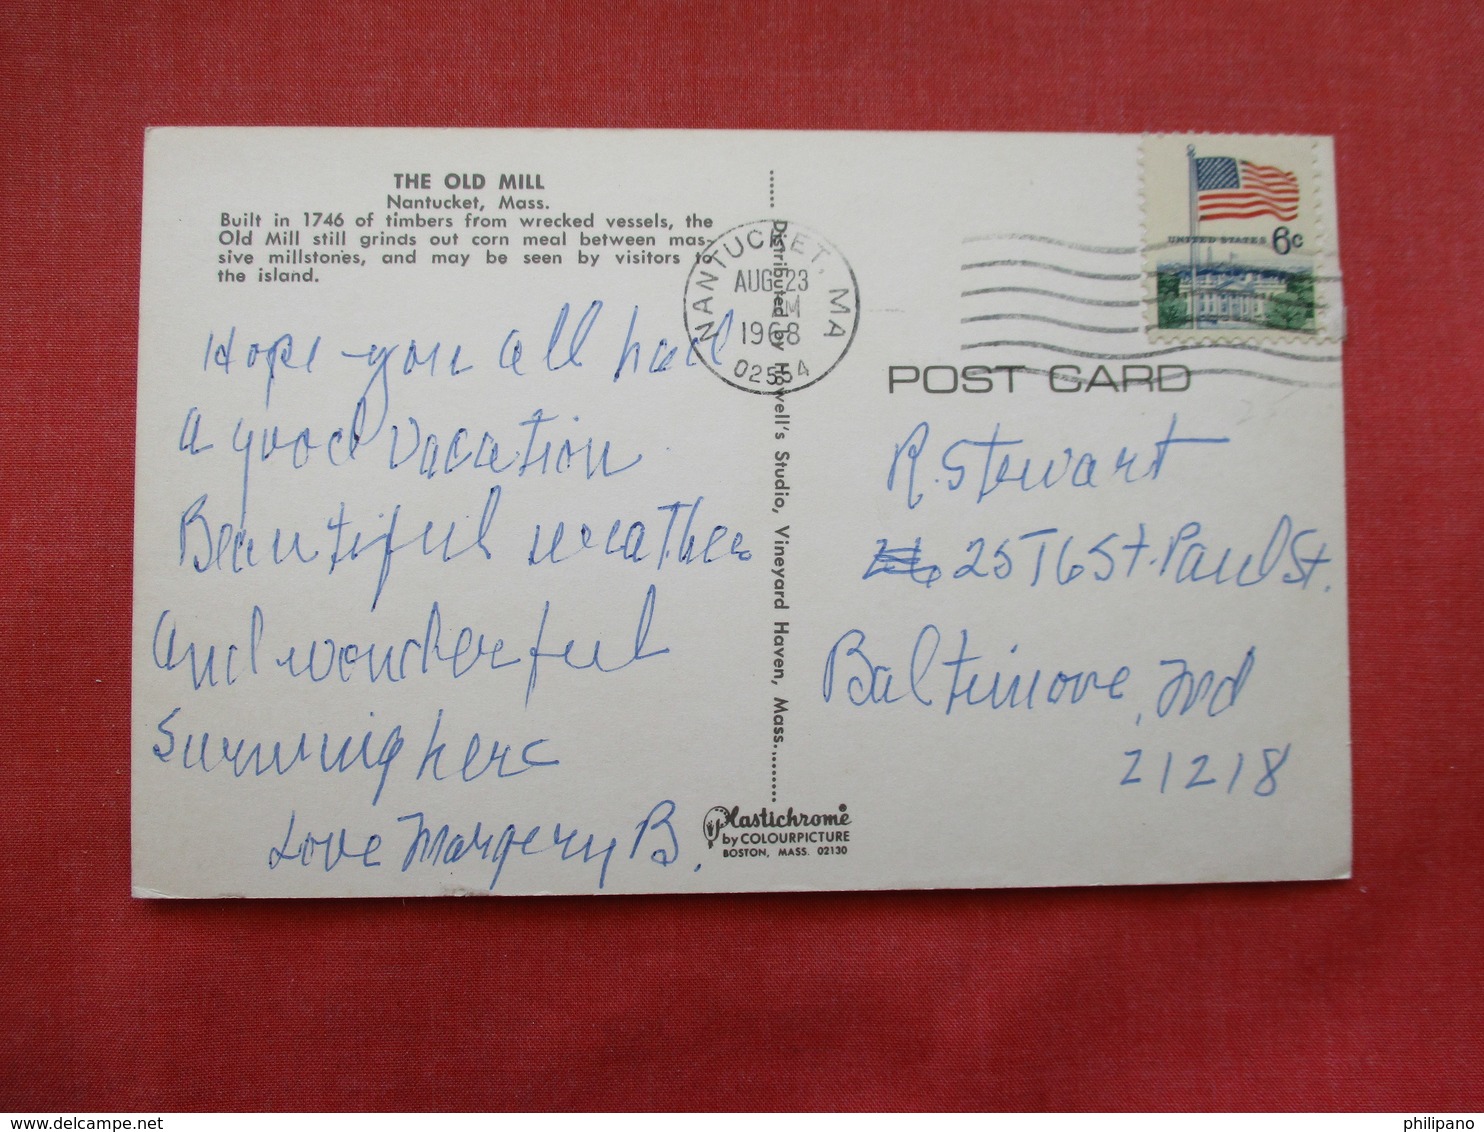 THE OLD MILL
Nantucket, Mass.
Built in 1746 of timbers from wrecked vessels, the
Old Mill still grinds out corn meal between mas-
sive millstones, and may be seen by visitors to
the island.
Hope you all had
a good vacation
Beautiful weather
and wonderful
swimming here
Love Margery B.
Distributed by Howell's Studio, Vineyard Haven, Mass.
Plastichrome®
by COLOURPICTURE
BOSTON, MASS. 02130
NANTUCKET, MA
AUG 23
1968
02554
UNITED STATES 6c
POST CARD
R. Stewart
2576 St. Paul St.
Baltimore, Md
21218
philipano
delcampe.net